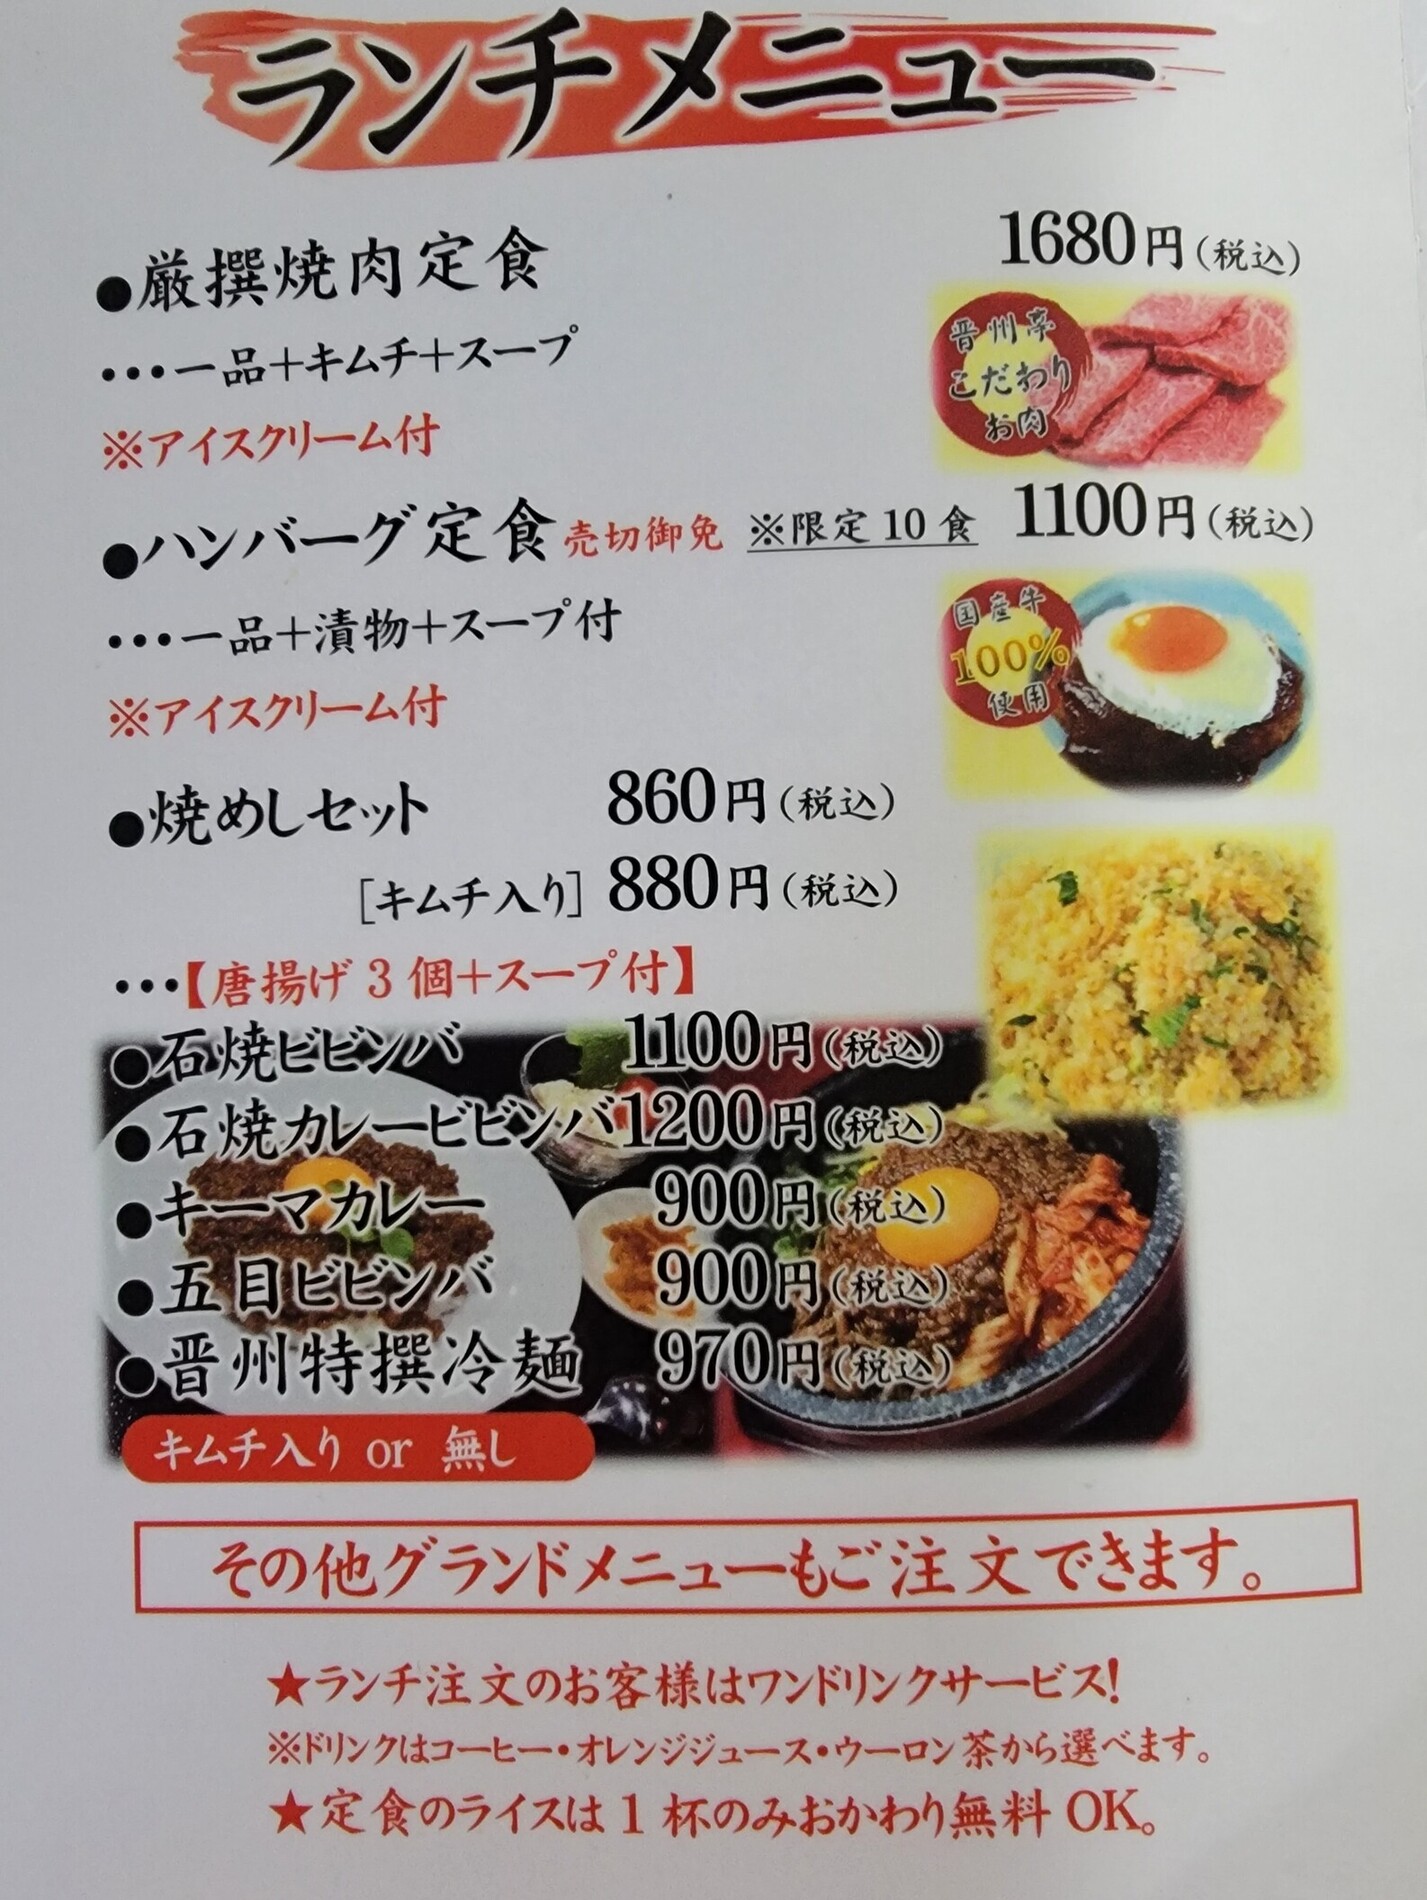 ランチメニュー
●厳撰焼肉定食 1680円(税込)
•••一品+キムチ+スープ
※アイスクリーム付
晋州亭
こだわり
お肉
●ハンバーグ定食 売切御免 ※限定10食 1100円(税込)
•••一品+漬物+スープ付
※アイスクリーム付
国産牛
100%
使用
●焼めしセット 860円(税込)
[キムチ入り] 880円(税込)
•••【唐揚げ3個+スープ付】
●石焼ビビンバ 1100円(税込)
●石焼カレービビンバ1200円(税込)
●キーマカレー 900円(税込)
●五目ビビンバ 900円(税込)
●晋州特撰冷麺 970円(税込)
キムチ入り or 無し
その他グランドメニューもご注文できます。
★ランチ注文のお客様はワンドリンクサービス!
※ドリンクはコーヒー・オレンジジュース・ウーロン茶から選べます。
★定食のライスは1杯のみおかわり無料OK。